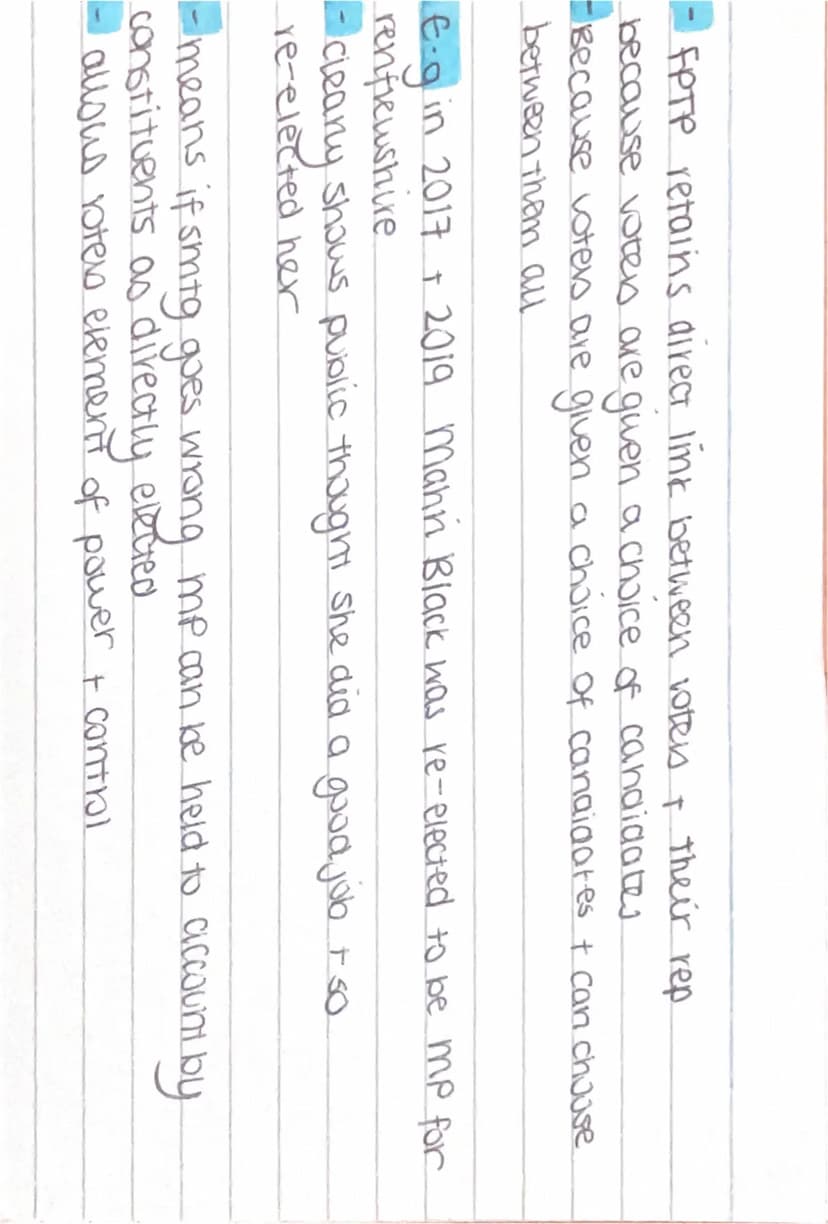 - FPTP retains direct link between voters + their rep
because voters are given a choice of candidates
- Because voters are given a choice of candidates + can choose
between them all
E.g in 2017 + 2019 Mahri Black was re-elected to be MP for
renfrewshire
- clearly shows public thought she did a good job + so
re-elected her
- means if smtg goes wrong MP can be held to account by
constituents as directly elected
- allows voters element of power + control